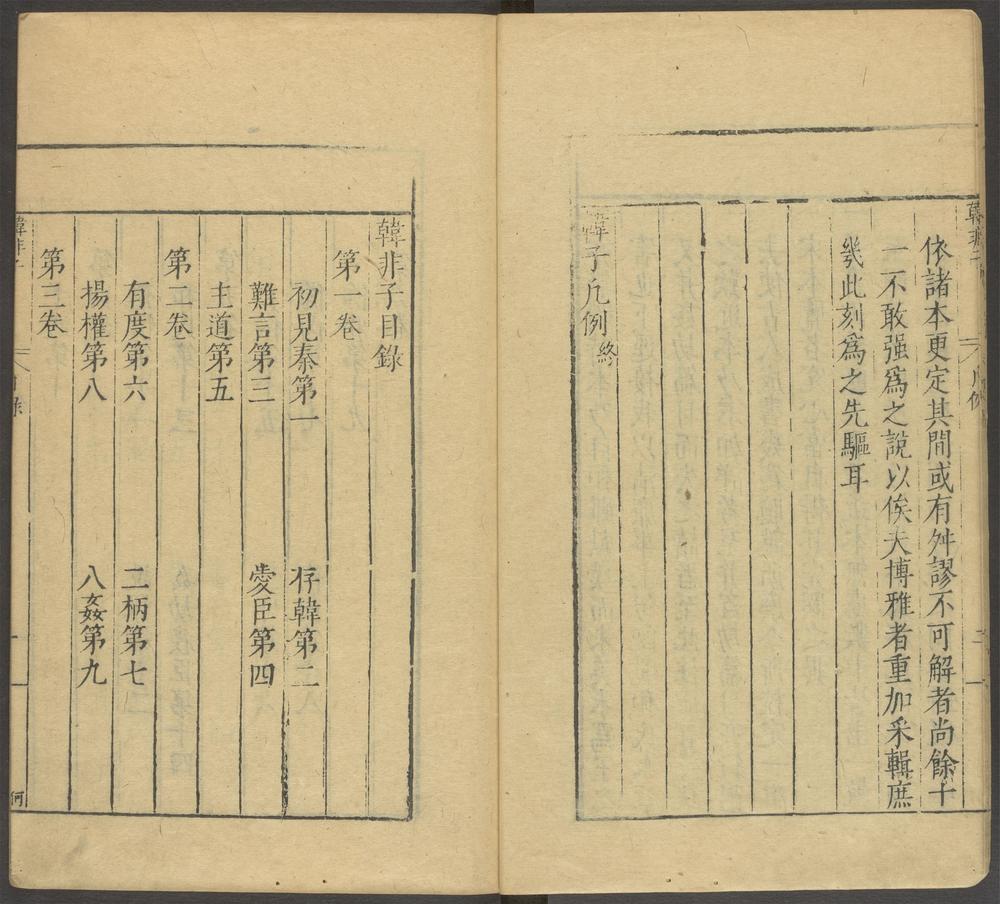 依諸本更定其間或有舛謬不可解者尚餘十
一不敢强爲之說以俟夫博雅者重加采輯庶
幾此刻爲之先驅耳
韓子凡例終
韓非子目錄
第一卷
初見秦第一 存韓第二
難言第三 愛臣第四
主道第五
第二卷
有度第六 二柄第七
揚權第八 八姦第九
第三卷